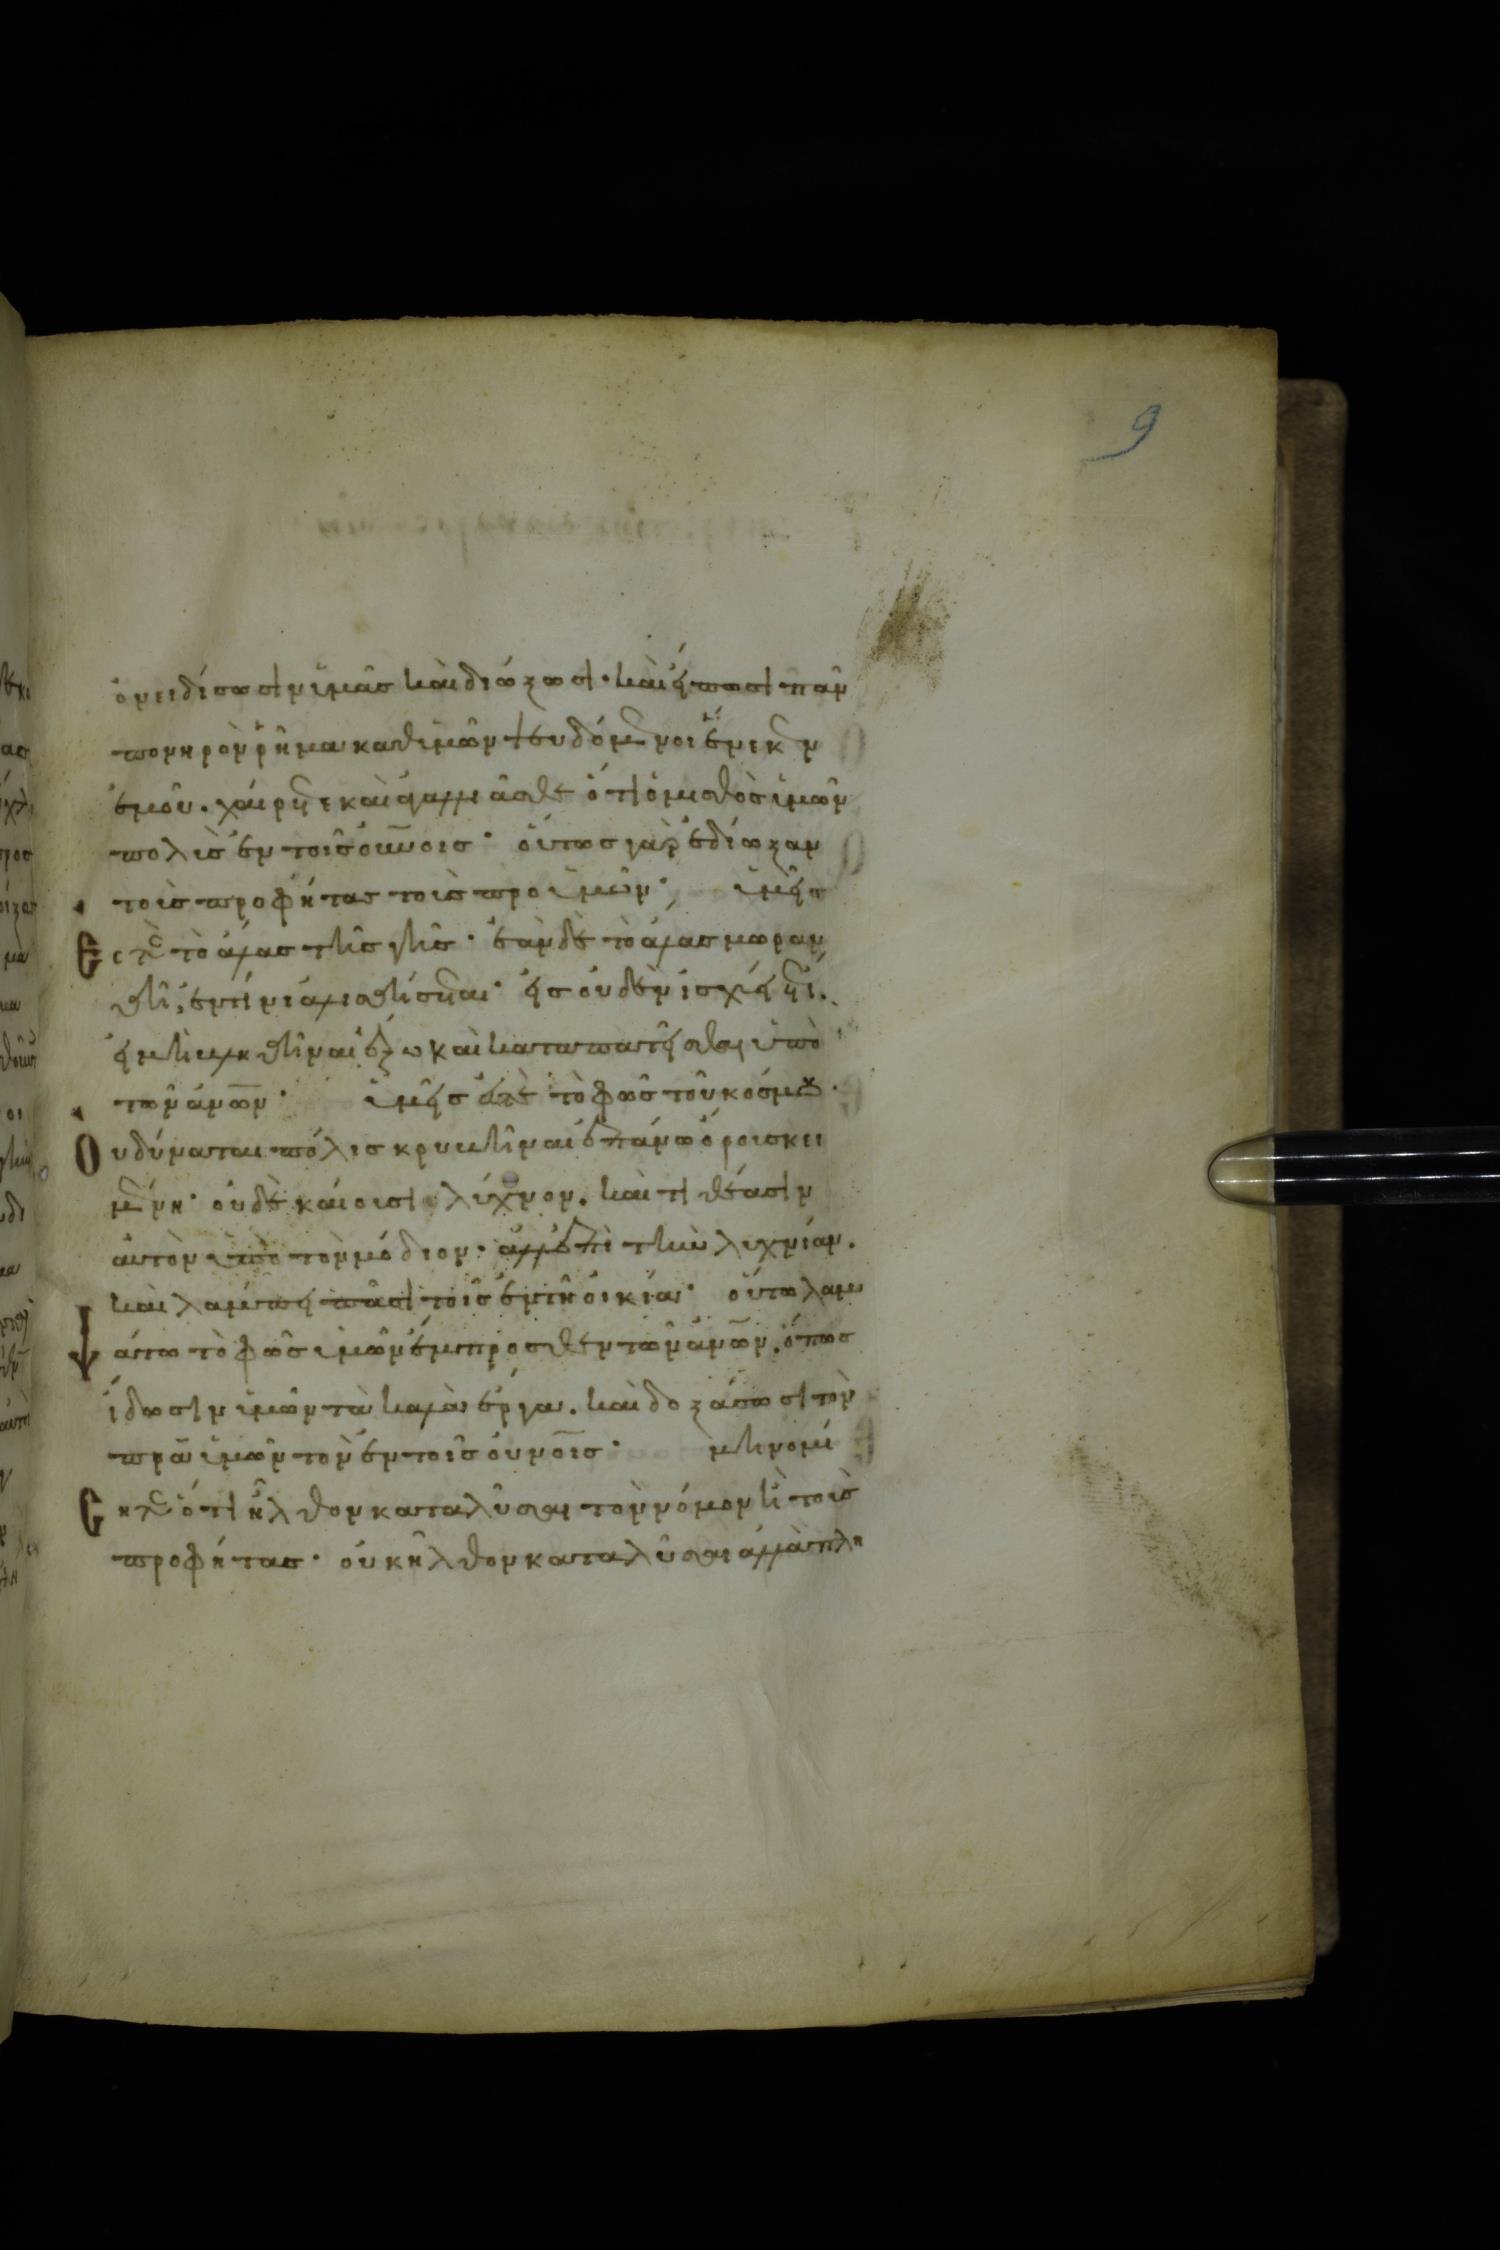 9
ὀνειδίσωσιν ὑμᾶς καὶ διώξωσι· καὶ εἴπωσι πᾶν
πονηρὸν ῥῆμα καθ ὑμῶν ψευδόμενοι ἕνεκεν
ἐμοῦ. χαίρετε καὶ ἀγαλλιᾶσθε ὅτι ὁ μισθὸς ὑμῶν
πολὺς ἐν τοῖς οὐνοις· οὕτως γὰρ ἐδίωξαν
τοὺς προφήτας τοὺς πρὸ ὑμῶν· ὑμεῖς
Ἐστὲ τὸ ἅλας τῆς γῆς· ἐὰν δὲ τὸ ἅλας μωραν
θῆ, ἐν τίνι ἁλισθήσεται· εἰς οὐδὲν ἰσχύει ἔτι.
εἰ μὴ βληθῆναι ἔξω καὶ καταπατεῖσθαι ὑπὸ
τῶν ἀνων· ὑμεῖς ἐστὲ τὸ φῶς τοῦ κόσμου.
Οὐ δύναται πόλις κρυβῆναι ἐπάνω ὄρους κει
μένη· οὐδὲ καίουσι λύχνον. καὶ τιθέασιν
αὐτὸν ὑπὸ τὸν μόδιον· ἀλλ ἐπὶ τὴν λυχνίαν.
καὶ λάμπει πᾶσι τοῖς ἐν τῆ οἰκία· οὕτω λαμ
ψάτω τὸ φῶς ὑμῶν ἔμπροσθεν τῶν ἀνων. ὅπως
ἴδωσιν ὑμῶν τὰ καλὰ ἔργα. καὶ δοξάσωσι τὸν
πρα ὑμῶν τὸν ἐν τοῖς οὐνοις· μὴ νομί
Σητε ὅτι ἦλθον καταλῦσαι τὸν νόμον ἢ τοὺς
προφήτας· οὐκ ἦλθον καταλῦσαι ἀλλὰ πλη